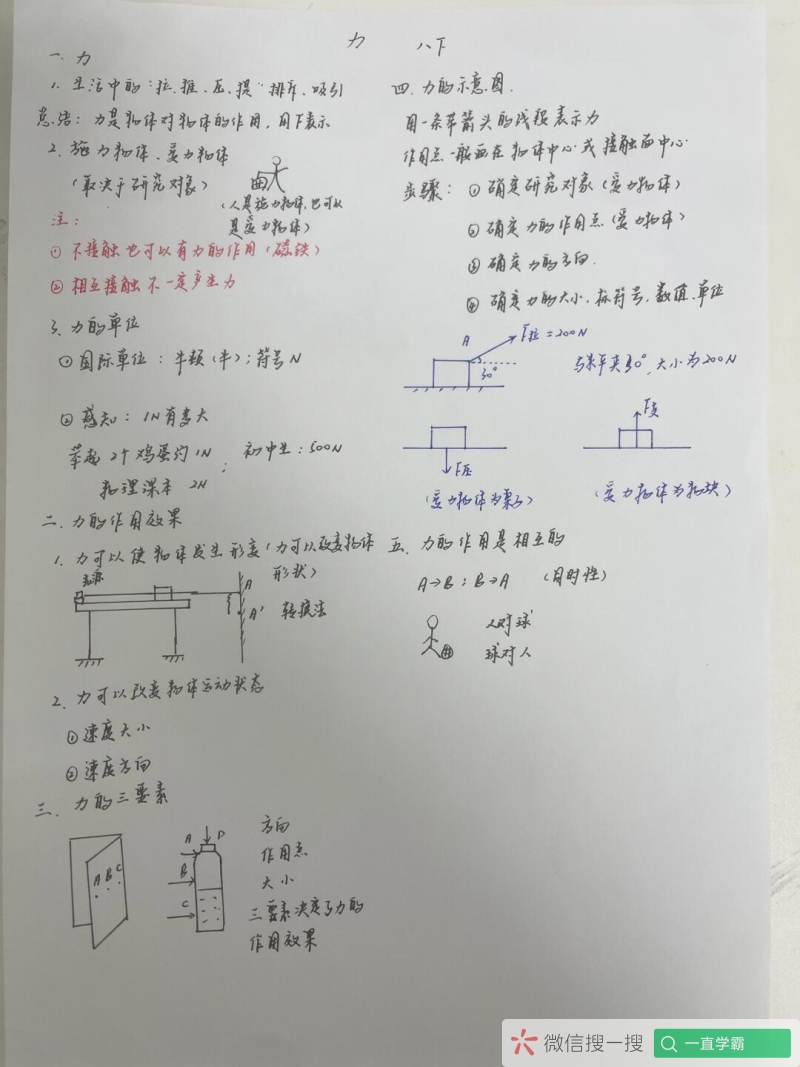 力 八下
一.力
1.生活中的"拉、推、压、提"排斥、吸引
总结：力是物体对物体的作用，用F表示
2.施力物体、受力物体
（取决于研究对象）
（人是施力物体，也可以
是受力物体）
注：
①不接触也可以有力的作用（磁铁）
②相互接触不一定产生力
3.力的单位
①国际单位：牛顿（牛）；符号N
②感知：1N有多大
举起2个鸡蛋约1N； 初中生：500N
物理课本 2N
二.力的作用效果
1.力可以使物体发生形变（力可以改变物体
形状）
光源
A
A'
转换法
2.力可以改变物体运动状态
①速度大小
②速度方向
三.力的三要素
A B C
A
D
B
C
方向
作用点
大小
三要素决定了力的
作用效果
四.力的示意图.
用一条带箭头的线段表示力
作用点一般画在物体中心或接触面中心
步骤：①确定研究对象（受力物体）
②确定力的作用点（受力物体）
③确定力的方向.
④确定力的大小、标符号、数值、单位
A
F拉=200N
30°
与水平夹30°，大小为200N
F压
F支
（受力物体为桌子）
（受力物体为物块）
五.力的作用是相互的
A→B；B→A （同时性）
人对球
球对人
微信搜一搜
一直学霸